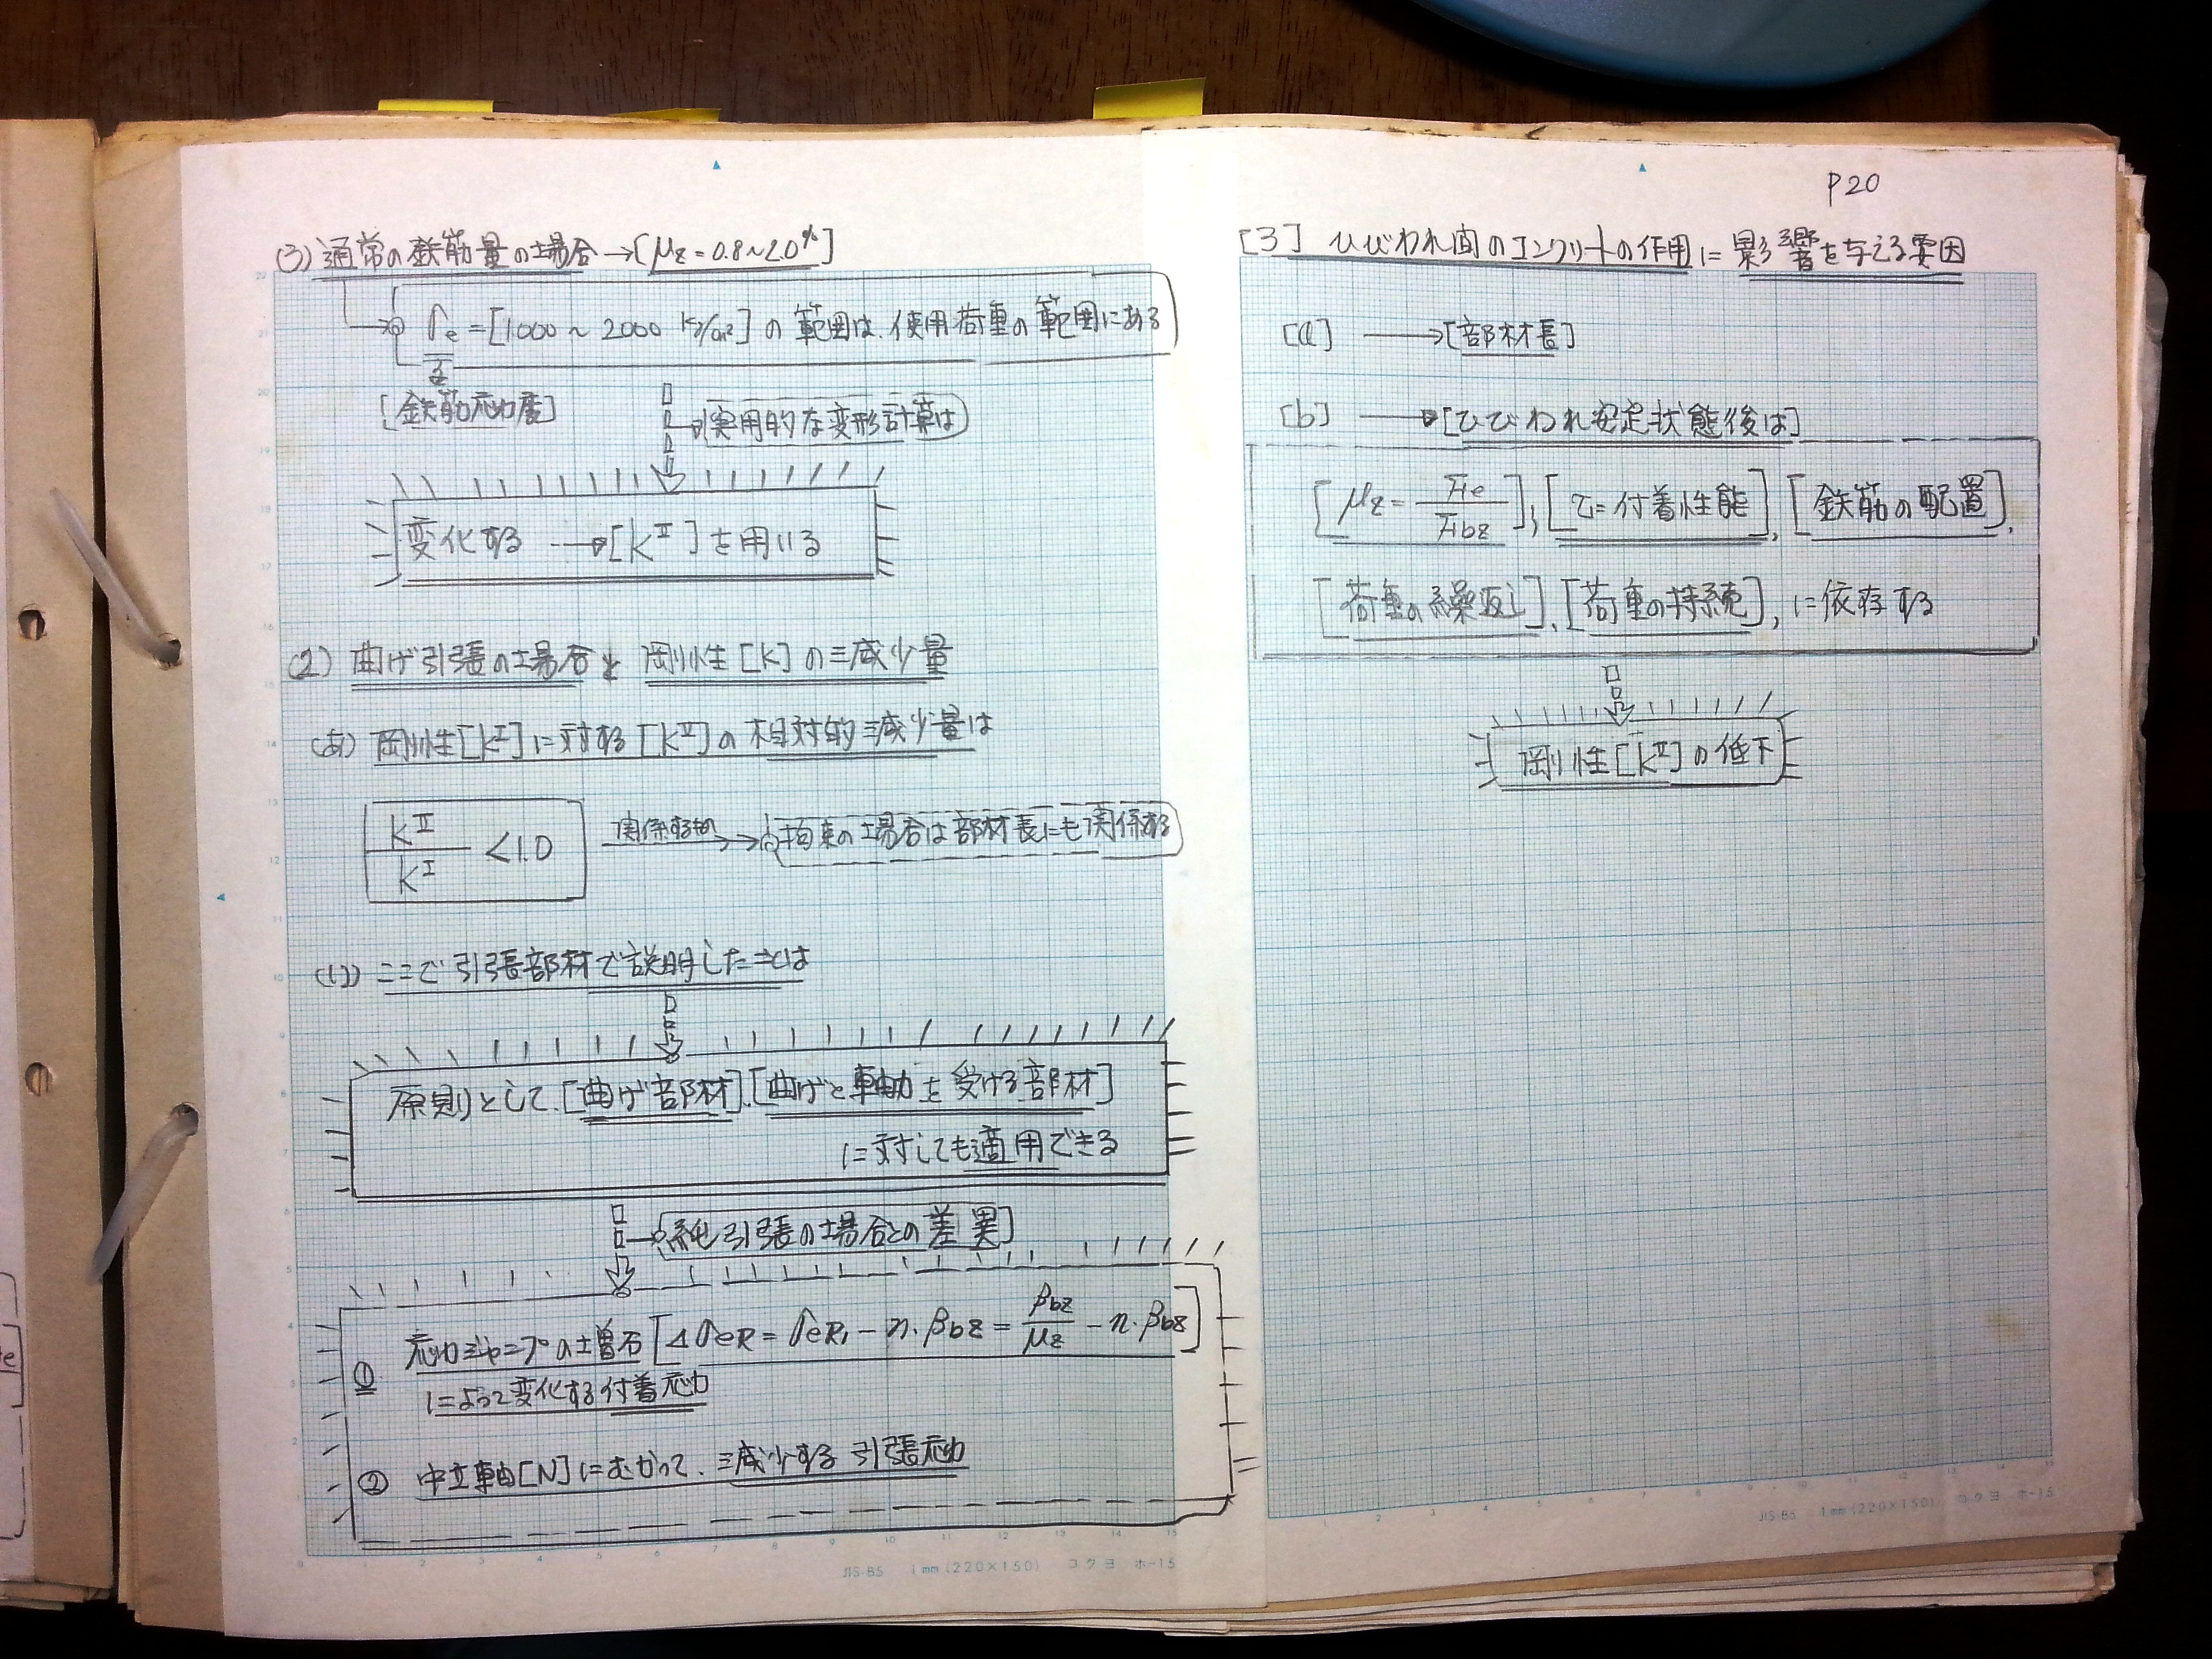 (う) 通常の鉄筋量の場合→[μz = 0.8~2.0%]
σe = [1000 ~ 2000 kg/cm²] の範囲は、使用荷重の範囲にある
[鉄筋応力度]
実用的な変形計算は
変化する → [KⅡ] を用いる
(2) 曲げ引張の場合と 剛性[K]の減少量
(あ) 剛性[KⅠ]に対する[KⅡ]の相対的減少量は
KⅡ/KⅠ < 1.0
拘束の場合は部材長にも関係する
(い) ここで引張部材で説明したことは
原則として、[曲げ部材]、[曲げと軸力を受ける部材]
に対しても適用できる
純引張の場合との差異
① 応力ジャンプの増加 [ΔσeR = σeR1 − n・βbz = βbz/μz − n・βbz]
によって変化する付着応力
② 中立軸[N]にむかって、減少する引張応力
JIS-B5 1mm (220×150) コクヨ ホ-15
P20
[3] ひびわれ間のコンクリートの作用に影響を与える要因
[a] → [部材長]
[b] → [ひびわれ安定状態後は]
[μz = Fe/Fbz], [τ = 付着性能], [鉄筋の配置],
[荷重の繰返し], [荷重の持続], に依存する
剛性[KⅡ]の低下
JIS-B5 1mm (220×150) コクヨ ホ-15